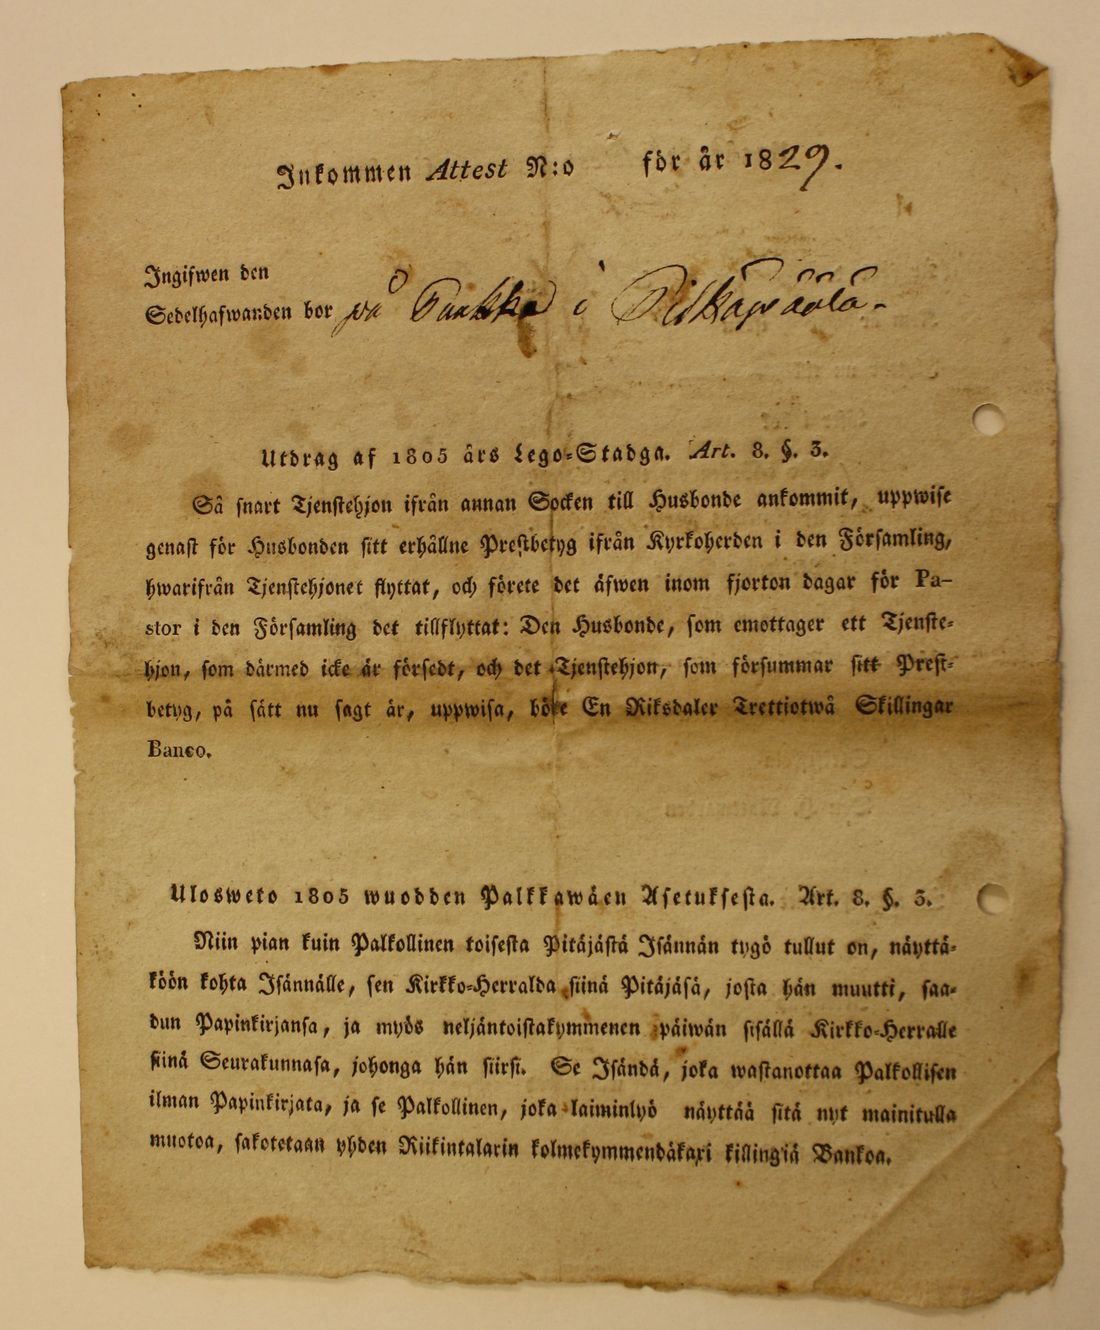 Inkommen Attest N:o för år 1829.
Ingifwen den
Sedelhafwanden bor på i
Utdrag af 1805 års Lego-Stadga. Art. 8. §. 3.
Så snart Tjenstehjon ifrån annan Socken till Husbonde ankommit, uppwise
genast för Husbonden sitt erhållne Prestbetyg ifrån Kyrkoherden i den Församling,
hwarifrån Tjenstehjonet flyttat, och förete det äfwen inom fjorton dagar för Pa-
stor i den Församling det tillflyttat: Den Husbonde, som emottager ett Tjenste-
hjon, som därmed icke är försedt, och det Tjenstehjon, som försummar sitt Prest-
betyg, på sätt nu sagt är, uppwisa, böte En Riksdaler Trettiotwå Skillingar
Banco.
Ulosweto 1805 wuodden Palkkawäen Asetuksesta. Art. 8. §. 3.
Niin pian kuin Palkollinen toisesta Pitäjästä Isännän tygö tullut on, näyttä-
köön kohta Isännälle, sen Kirkko-Herralda siinä Pitäjäsä, josta hän muutti, saa-
dun Papinkirjansa, ja myös neljäntoistakymmenen päiwän sisällä Kirkko-Herralle
siinä Seurakunnasa, johonga hän siirsi. Se Isändä, joka wastanottaa Palkollisen
ilman Papinkirjata, ja se Palkollinen, joka laiminlyö näyttää sitä nyt mainitulla
muotoa, sakotetaan yhden Riikintalarin kolmekymmendäkaxi killingiä Bankoa.